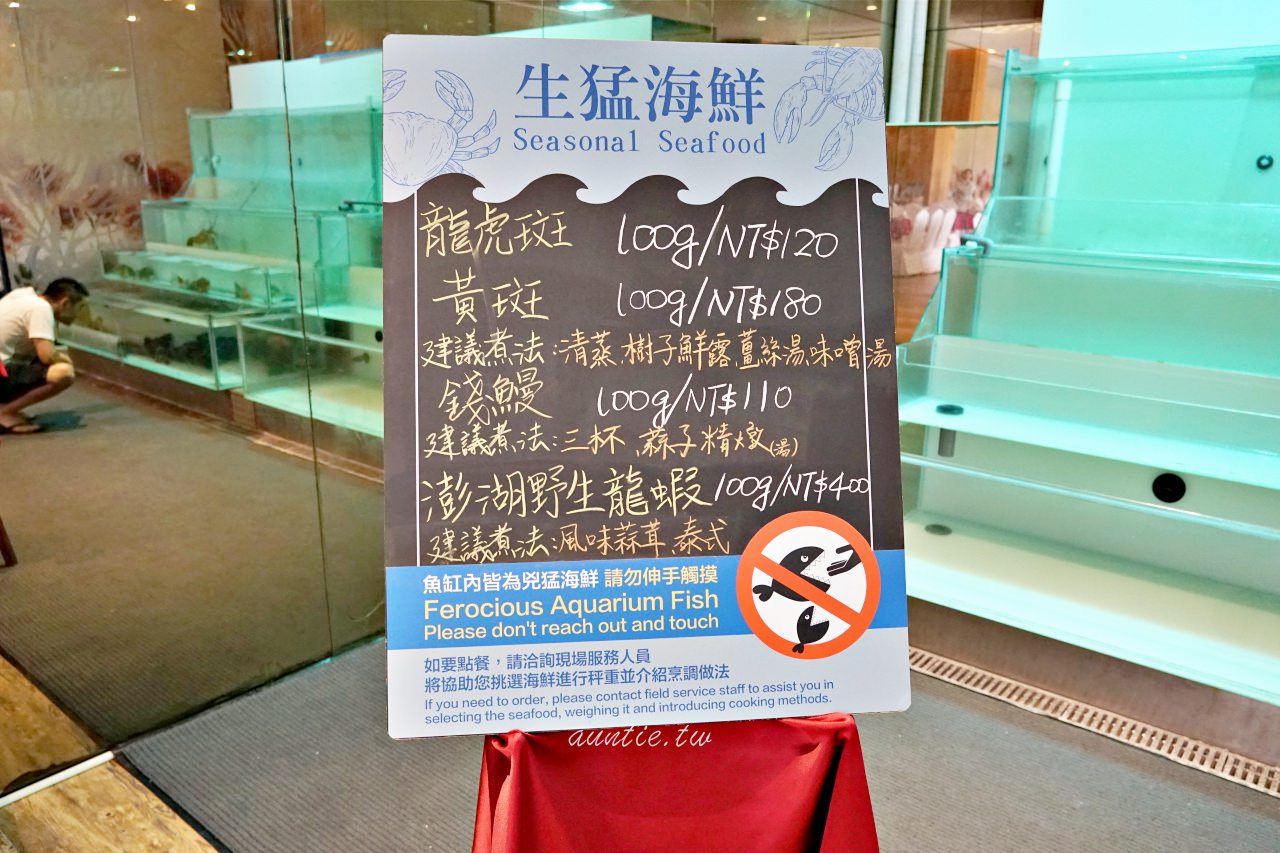 生猛海鮮
Seasonal Seafood
龍虎斑 100g/NT$120
黃斑 100g/NT$180
建議煮法:清蒸、樹子鮮露、薑絲湯、味噌湯
錢鰻 100g/NT$110
建議煮法:三杯、蒜子精燉(湯)
澎湖野生龍蝦 100g/NT$400
建議煮法:風味蒜茸、泰式
魚缸內皆為兇猛海鮮 請勿伸手觸摸
Ferocious Aquarium Fish
Please don't reach out and touch
如要點餐，請洽詢現場服務人員
將協助您挑選海鮮進行秤重並介紹烹調做法
If you need to order, please contact field service staff to assist you in
selecting the seafood, weighing it and introducing cooking methods.
auntie.tw